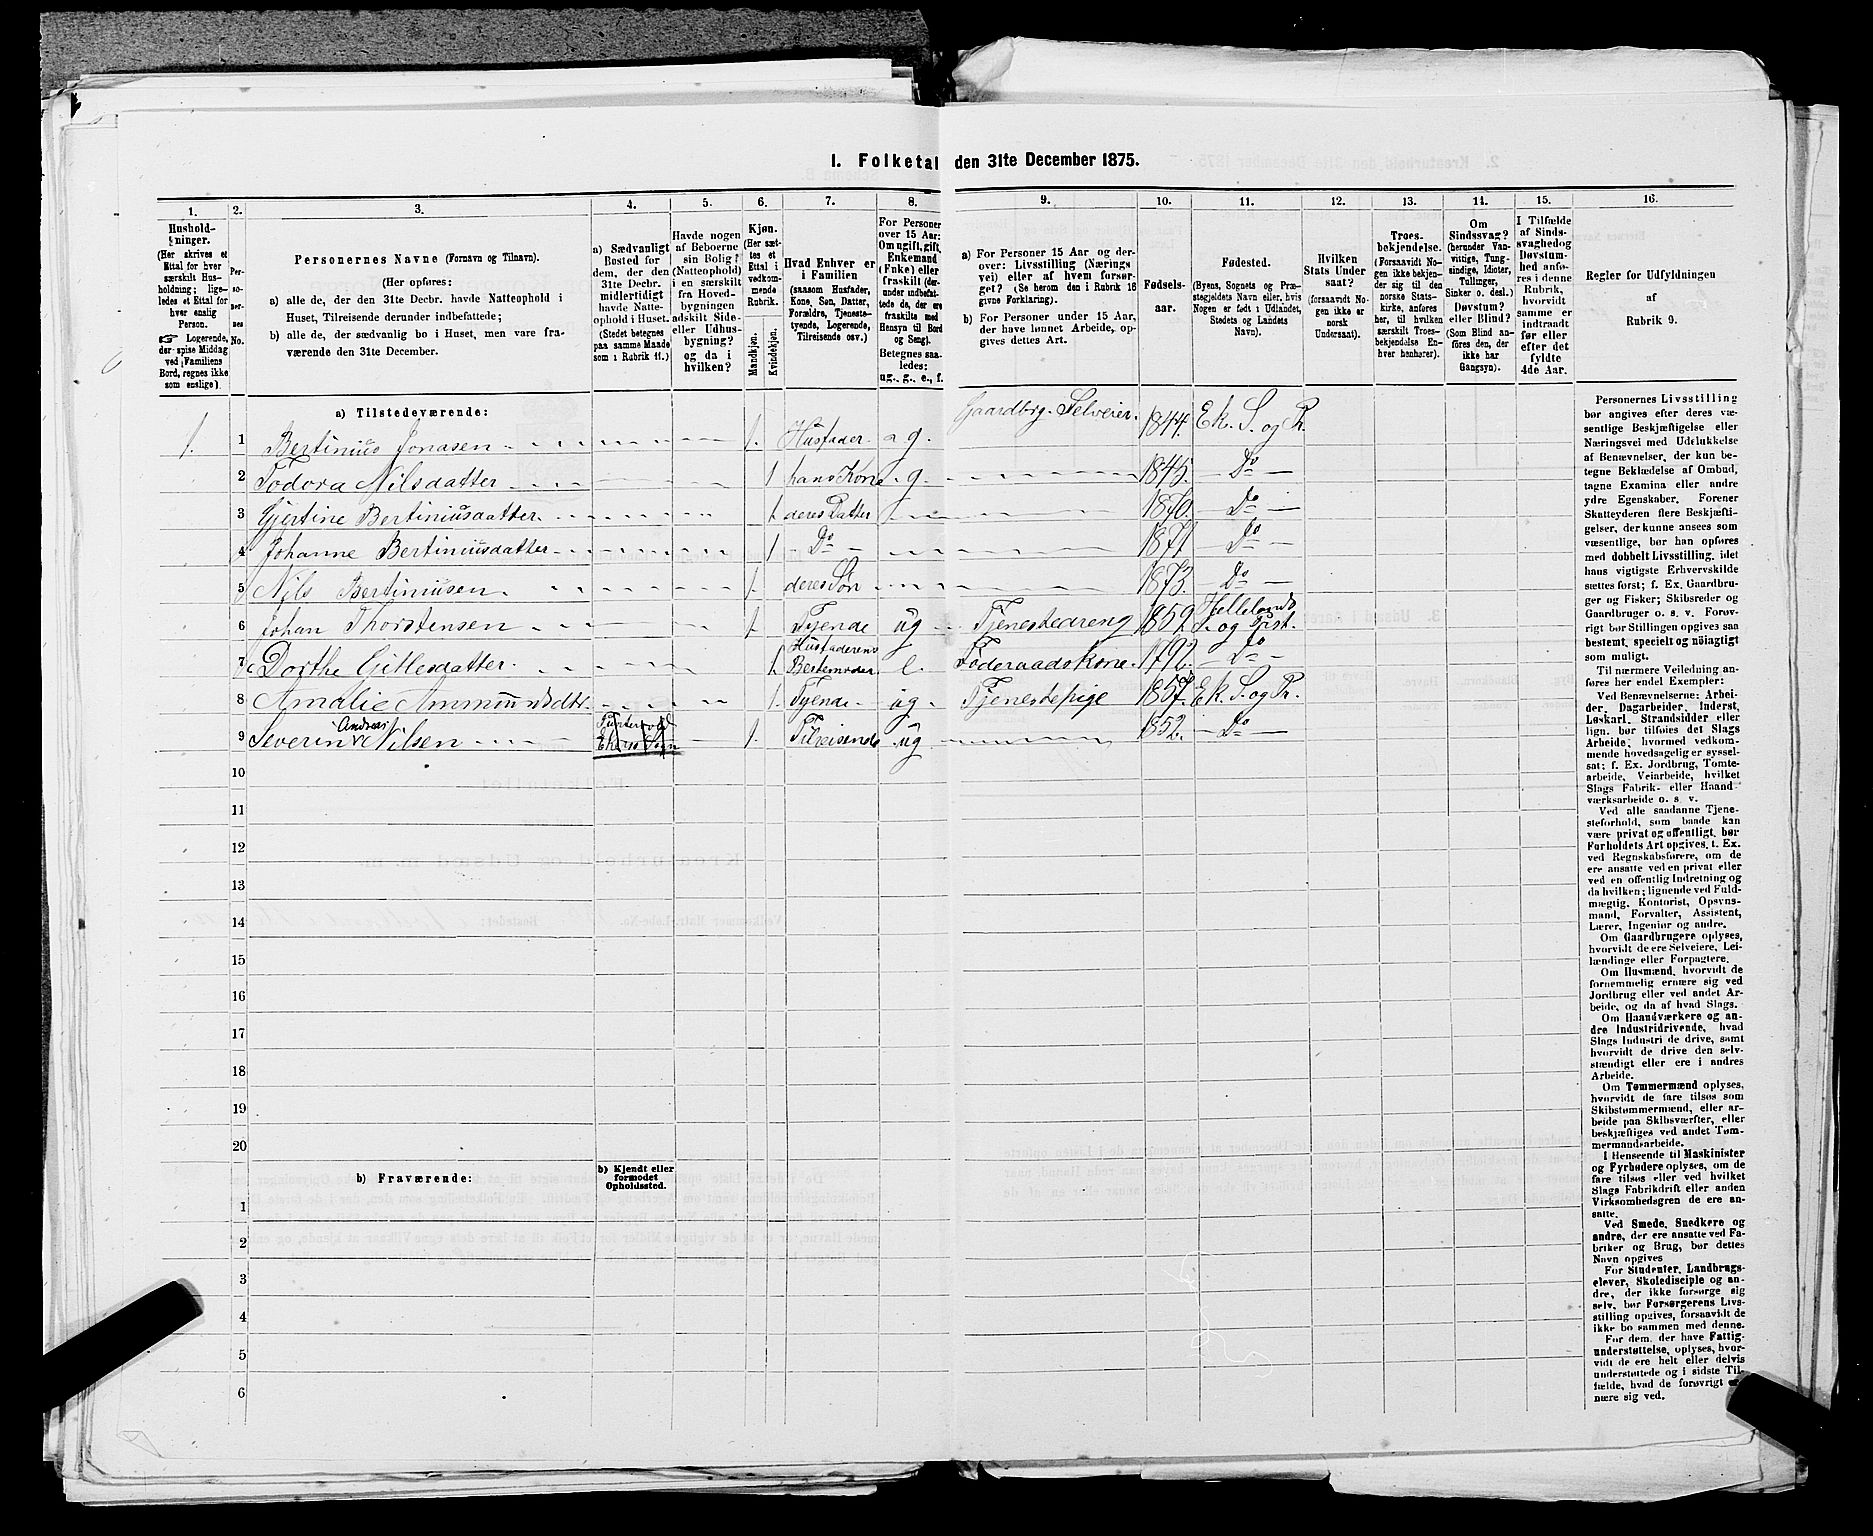 1. Folketal den 31te December 1875.
1. 2. 3. 4. 5. 6. 7. 8. 9. 10. 11. 12. 13. 14. 15. 16.
Hushold-
ninger.
(Her skrives et
Ettal for hver
særskilt Hus-
holdning; lige-
ledes et Ettal for
hver enslig
Person.
☞ Logerende,
der spise Middag
ved Familiens
Bord, regnes ikke
som enslige).
Per-
so-
ner-
nes
No.
Personernes Navne (Fornavn og Tilnavn).
(Her opføres:
a) alle de, der den 31te Decbr. havde Natteophold i
Huset, Tilreisende derunder indbefattede;
b) alle de, der sædvanlig bo i Huset, men vare fra-
værende den 31te December.
a) Sædvanligt
Bosted for
dem, der den
31te Decbr.
midlertidigt
havde Natte-
ophold i Huset.
(Stedet betegnes
paa samme Maade
som i Rubrik 11.)
Havde nogen
af Beboerne
sin Bolig
(Natteophold)
i en særskilt
fra Hoved-
bygningen
adskilt Side-
eller Udhus-
bygning?
og da i
hvilken?
Kjøn.
(Her sæt-
tes et
Ettal i
vedkom-
mende
Rubrik.
Mandkjøn.
Kvindekjøn.
Hvad Enhver er
i Familien
(saasom Husfader,
Kone, Søn, Datter,
Forældre, Tjeneste-
tyende, Logerende,
Tilreisende osv.)
For Personer
over 15 Aar:
Om ugift, gift,
Enkemand
(Enke) eller
fraskilt (der-
under indbefat-
tede de, der ere
fraskilte med
Hensyn til Bord
og Seng).
Betegnes saa-
ledes:
ug., g., e., f.
a) For Personer 15 Aar og der-
over: Livsstilling (Nærings
vei) eller af hvem forsør-
get? (Se herom den i Rubrik 16
givne Forklaring).
b) For Personer under 15 Aar,
der have lønnet Arbeide, op-
gives dettes Art.
Fødsels-
aar.
Fødested.
(Byens, Sognets og Præ-
stegjeldets Navn eller, hvis
Nogen er født i Udlandet,
Stedets og Landets
Navn).
Hvilken
Stats Under
saat?
(forsaavidt No-
gen ikke er
norsk
Undersaat).
Troes-
bekjendelse.
(Forsaavidt No-
gen ikke bekjen-
der sig til den
norske Stats-
kirke, anføres
her, til hvilken
særskilt Troes-
bekjendelse En-
hver henhører).
Om
Sindssvag?
(herunder Van-
vittige, Tung-
sindige, Idioter,
Tullinger,
Sinker o. desl.)
Døvstum?
eller Blind?
(Som Blind an-
føres den, der
ikke har
Gangsyn).
I Tilfælde
af Sinds-
svaghed og
Døvstum-
hed anfø-
res i denne
Rubrik,
hvorvidt
samme er
indtraadt
før eller
efter det
fyldte
4de Aar.
Regler for Udfyldningen
af
Rubrik 9.
a) Tilstedeværende:
1. 1 Bertinius Jonasen 1. Husfader g. Gaardbrg. Selveier. 1844. Ek. S. og Pr.
2 Todora Nilsdatter 1 hans Kone g. 1845. Do
3 Gjertine Bertiniusdatter 1 deres Datter 1870. Do
4 Johanne Bertiniusdatter 1 Do 1871 Do
5 Nils Bertiniusen 1. deres Søn 1873. Do
6 Johan Thorstensen 1. Tyende ug Tjenestedreng 1859 Hellelands S. og Prst.
7 Dorthe Gitlesdatter 1. Husfaderens Bestemoder e. Føderaadskone. 1792. Do
8 Amalie Ammundsdtr. 1. Tyende ug Tjenestepige 1857. Ek S. og Pr.
9 Severin Andreas Nilsen Ekers Sogn 1. Tilreisende ug 1852. Do
10
11
12
13
14
15
16
17
18
19
20
b) Fraværende:
b) Kjendt eller
formodet
Opholdssted.
1
2
3
4
5
6
Personernes Livsstilling
bør angives efter deres væ-
sentlige Beskjæftigelse eller
Næringsvei med Udelukkelse
af Benævnelser, der kun be-
tegne Beklædelse af Ombud,
tagne Examina eller andre
ydre Egenskaber. Forener
Skatteyderen flere Beskjæfti-
gelser, der kunne ansees som
væsentlige, bør han opføres
med dobbelt Livsstilling, idet
hans vigtigste Erhvervskilde
sættes først; f. Ex. Gaardbru-
ger og Fisker; Skibsreder og
Gaardbruger o. s. v. Forøv-
rigt bør Stillingen opgives saa
bestemt, specielt og nøiagtigt
som muligt.
Til nærmere Veiledning an-
føres her endel Exempler:
Ved Benævnelserne: Arbei-
der, Dagarbeider, Inderst,
Løskarl, Strandsidder eller
lign. bør tilføies det Slags
Arbeide, hvormed vedkom-
mende hovedsagelig er syssel-
sat; f. Ex. Jordbrug, Tomte-
arbeide, Veiarbeide, hvilket
Slags Fabrik- eller Haand-
værksarbeide o. s. v.
Ved alle saadanne Tjene-
steforhold, som baade kan
være privat og offentligt, bør
Forholdets Art opgives, t. Ex.
ved Regnskabsførere, om de
ere ansatte ved en privat eller
ved en offentlig Indretning og
da hvilken; lignende ved Fuld-
mægtig, Kontorist, Opsyns-
mand, Forvalter, Assistent,
Lærer, Ingeniør og andre.
Om Gaardbrugere oplyses,
hvorvidt de ere Selveiere, Lei-
lændinge eller Forpagtere.
Om Husmænd, hvorvidt de
fornemmelig ernære sig ved
Jordbrug eller ved andet Ar-
beide, og da af hvad Slags.
Om Haandværkere og an-
dre Industridrivende, hvad
Slags Industri de drive, samt
hvorvidt de drive den selv-
stændigt eller ere i andres
Arbeide.
Om Tømmermænd oplyses,
hvorvidt de fare tilsøs som
Skibstømmermænd, eller ar-
beide paa Skibsværfter, eller
beskjæftiges ved andet Tøm-
mermandsarbeide.
I Henseende til Maskinister
og Fyrbødere oplyses, om de
fare tilsøs eller ved hvilket
Slags Fabrikdrift eller anden
Virksomhedsgren de ere an-
satte.
Ved Smede, Snedkere og
andre, der ere ansatte ved Fa-
briker og Brug, bør dettes
Navn opgives
For Studenter, Landbrugs-
elever, Skoledisciple og an-
dre, der ikke forsørge sig
selv, bør Forsørgerens Livs-
stilling opgives, forsaavidt de
ikke bo sammen med denne.
For dem, der have Fattig-
understøttelse, oplyses, hvor-
vidt de ere helt eller delvis
understøttede og i sidste Til-
fælde, hvad de forøvrigt er-
nære sig ved.